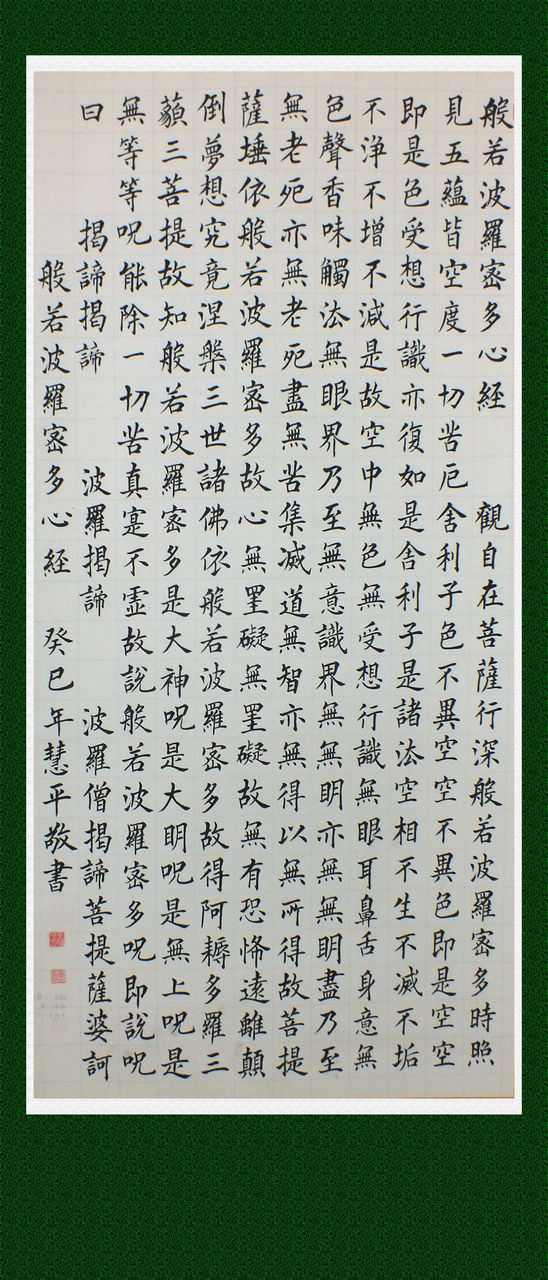 般若波羅密多心経　觀自在菩薩行深般若波羅密多時照
見五蘊皆空度一切苦厄舍利子色不異空空不異色即是空空
即是色受想行識亦復如是舍利子是諸法空相不生不滅不垢
不浄不增不減是故空中無色無受想行識無眼耳鼻舌身意無
色聲香味觸法無眼界乃至無意識界無無明亦無無明盡乃至
無老死亦無老死盡無苦集滅道無智亦無得以無所得故菩提
薩埵依般若波羅密多故心無罣礙無罣礙故無有恐怖遠離顛
倒夢想究竟涅槃三世諸佛依般若波羅密多故得阿耨多羅三
藐三菩提故知般若波羅密多是大神呪是大明呪是無上呪是
無等等呪能除一切苦真寔不虛故說般若波羅密多呪即說呪
曰　揭諦揭諦　波羅揭諦　波羅僧揭諦菩提薩婆訶
般若波羅密多心経　癸巳年慧平敬書